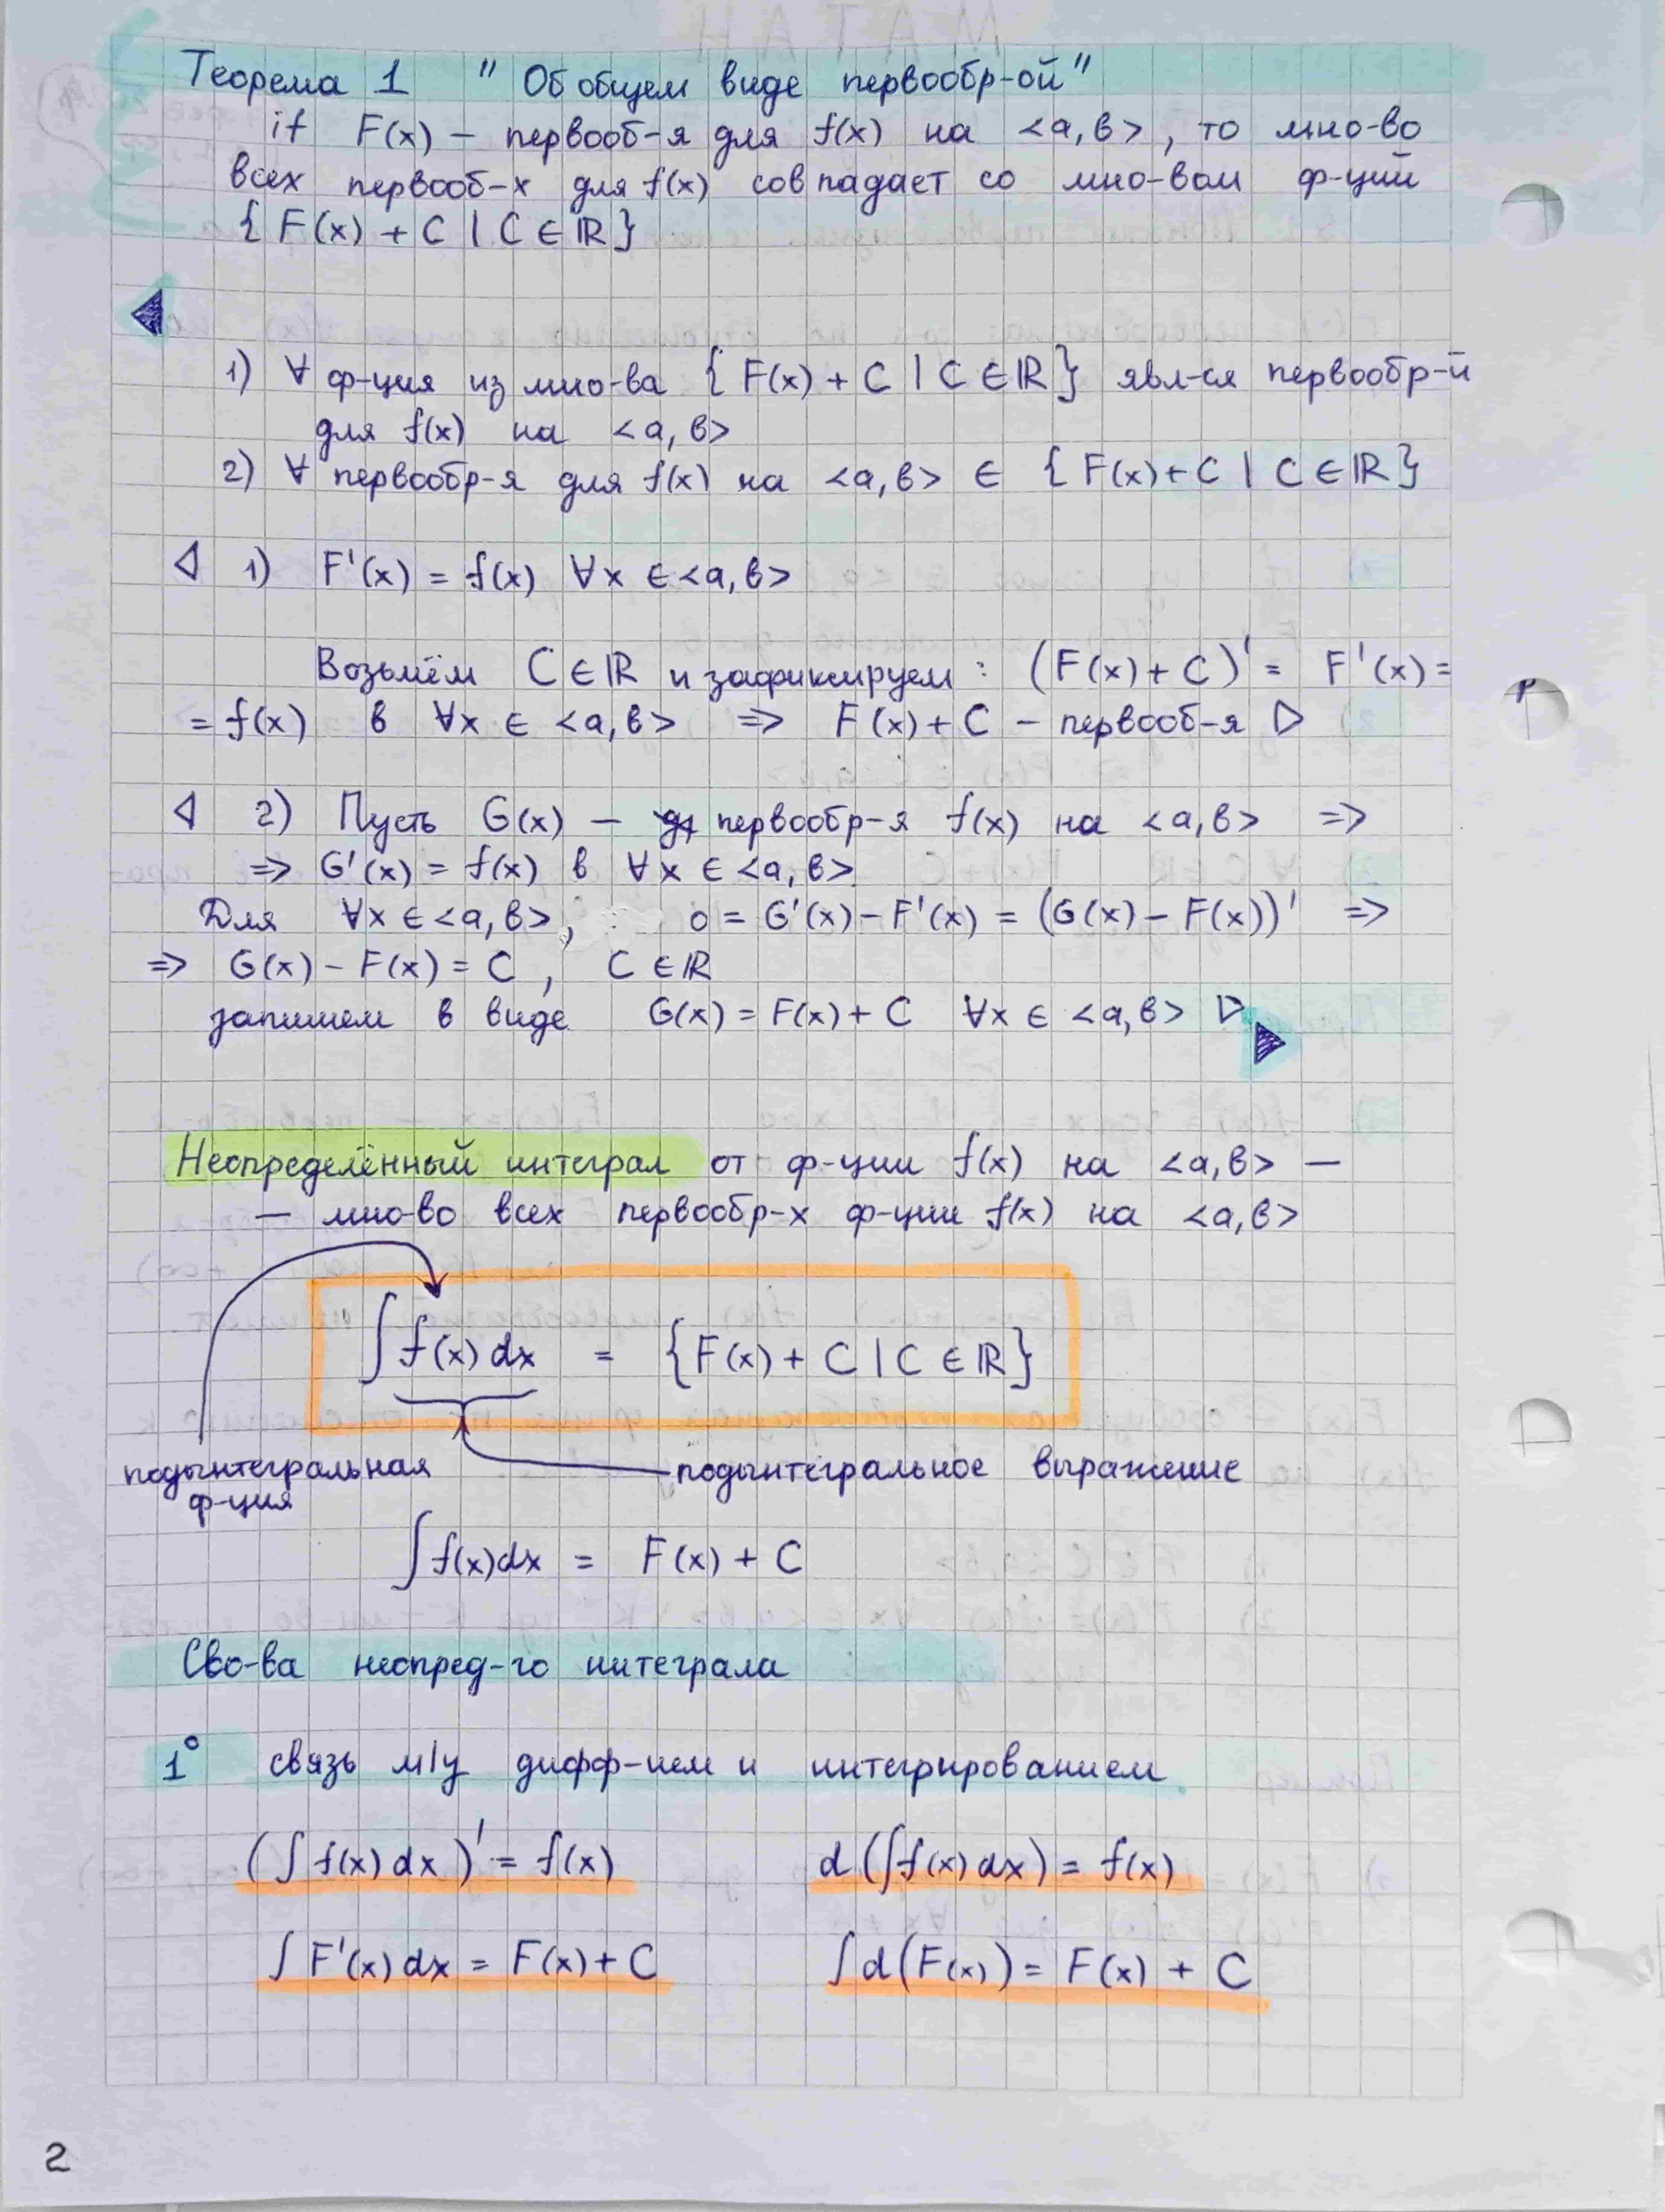 Теорема 1 " Об общем виде первообр-ой"
if F(x) – первооб-я для f(x) на <a, b>, то мно-во
всех первооб-х для f(x) совпадает со мно-вом ф-ций
{ F(x) + C | C ∈ ℝ }
1) ∀ ф-ция из мно-ва { F(x) + C | C ∈ ℝ } явл-ся первообр-й
для f(x) на <a, b>
2) ∀ первообр-я для f(x) на <a, b> ∈ { F(x) + C | C ∈ ℝ }
◁ 1) F'(x) = f(x) ∀x ∈ <a, b>
Возьмём C ∈ ℝ и зафиксируем : (F(x) + C)' = F'(x) =
= f(x) в ∀x ∈ <a, b> => F(x) + C – первооб-я ▷
◁ 2) Пусть G(x) – первообр-я f(x) на <a, b> =>
=> G'(x) = f(x) в ∀x ∈ <a, b>
Для ∀x ∈ <a, b>, 0 = G'(x) – F'(x) = (G(x) – F(x))' =>
=> G(x) – F(x) = C , C ∈ ℝ
запишем в виде G(x) = F(x) + C ∀x ∈ <a, b> ▷
Неопределённый интеграл от ф-ции f(x) на <a, b> –
– мно-во всех первообр-х ф-ции f(x) на <a, b>
∫ f(x) dx = { F(x) + C | C ∈ ℝ }
подынтегральная
ф-ция
подынтегральное выражение
∫ f(x)dx = F(x) + C
Сво-ва неопред-го интеграла
1° связь м/у дифф-ием и интегрированием
(∫ f(x) dx)' = f(x) d (∫f(x) dx) = f(x)
∫ F'(x) dx = F(x) + C ∫ d(F(x)) = F(x) + C
2